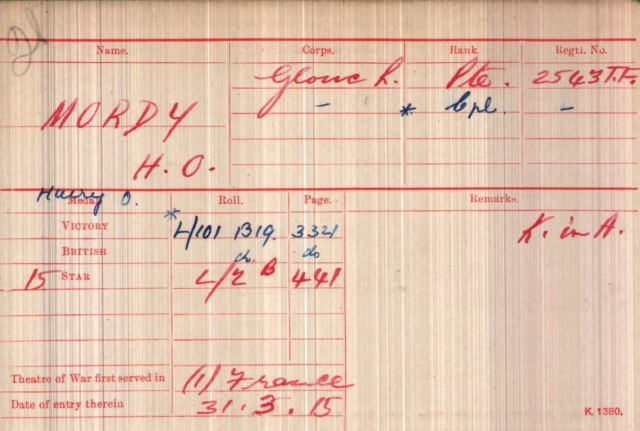 Name. Corps. Rank Regtl. No.
Glouc R. Pte. 2543 T.F.
MORDY - * Cpl. -
H. O.
Harry O.
Medal Roll. Page. Remarks.
VICTORY * L/101 B19. 3321 K. in A.
BRITISH do do
15 STAR L/2 B 441
Theatre of War first served in (1) France
Date of entry therein 31.3.15
K. 1380.